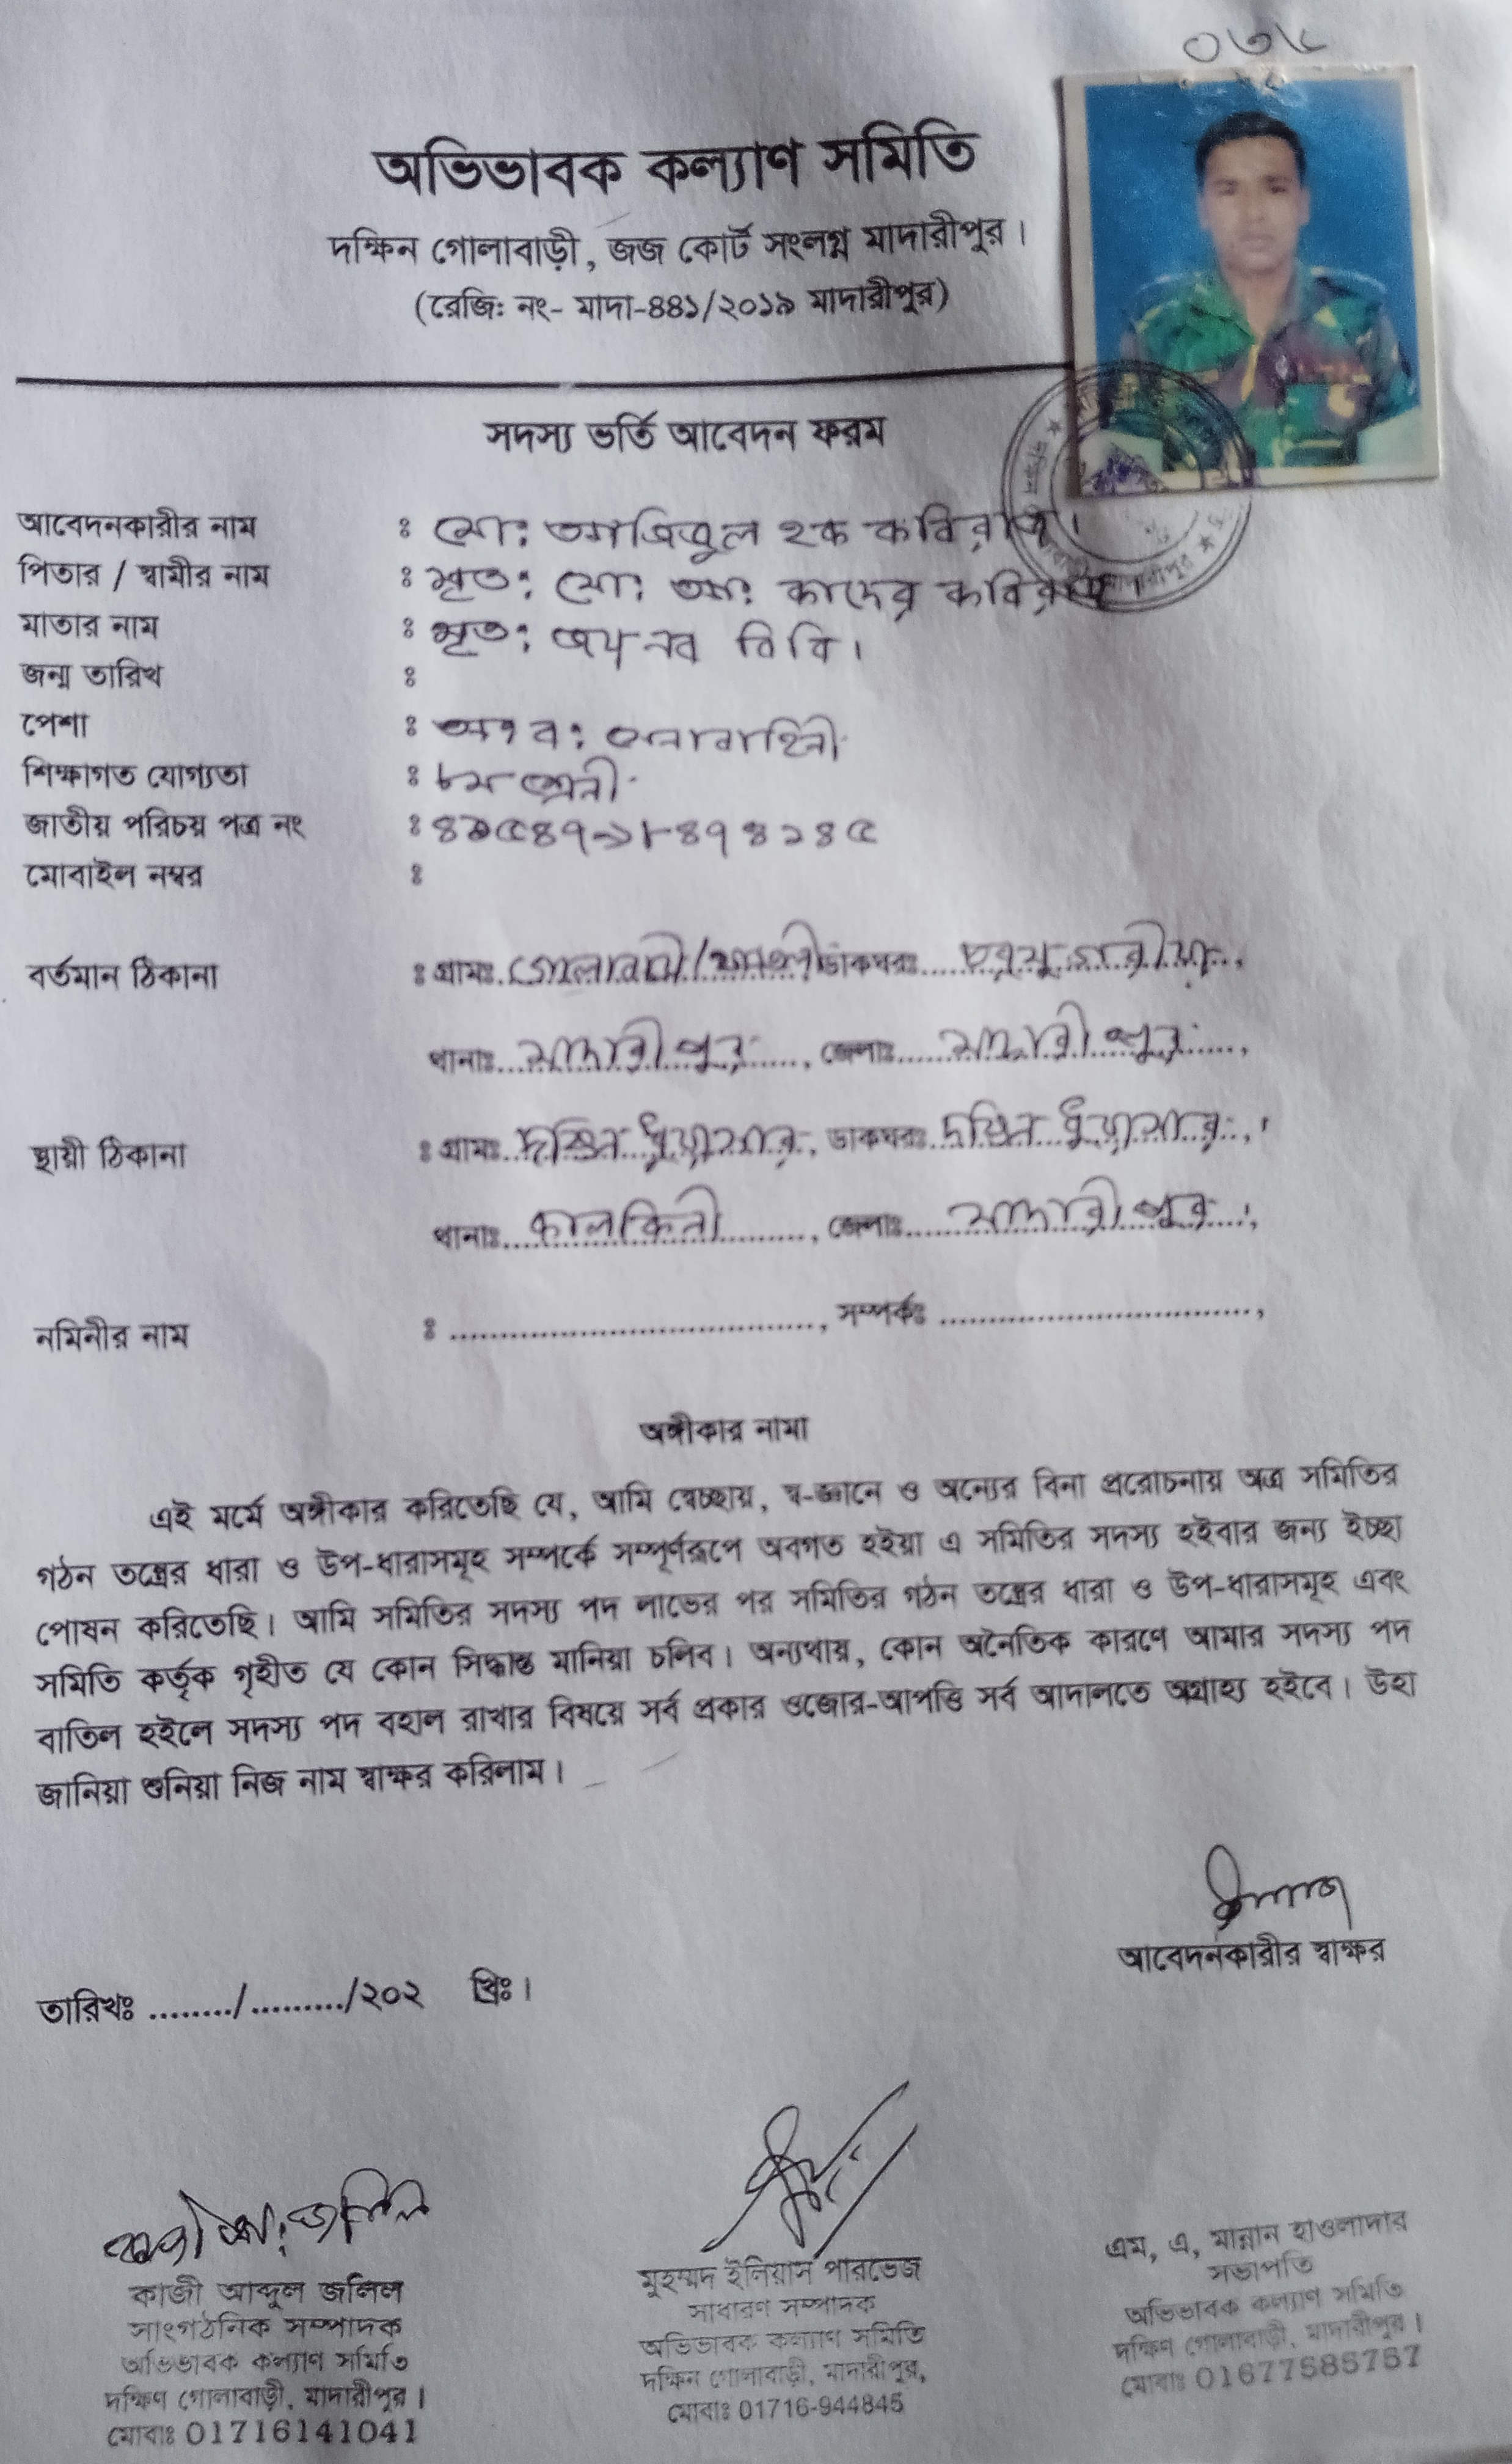 ০৩৫
অভিভাবক কল্যাণ সমিতি
দক্ষিন গোলাবাড়ী, জজ কোর্ট সংলগ্ন মাদারীপুর।
(রেজি: নং- মাদা-৪৪১/২০১৯ মাদারীপুর)
সদস্য ভর্তি আবেদন ফরম
আবেদনকারীর নাম : মো: আজিজুল হক কবিরাজ।
পিতার / স্বামীর নাম : মৃত: মো: আ: কাদের কবিরাজ।
মাতার নাম : মৃত: জয়নব বিবি।
জন্ম তারিখ :
পেশা : অব: সেনাবাহিনী
শিক্ষাগত যোগ্যতা : ৮ম শ্রেনী
জাতীয় পরিচয় পত্র নং :
মোবাইল নম্বর :
বর্তমান ঠিকানা : গ্রামঃ গোলাবাড়ী/ ডাকঘরঃ চরমুগরীয়া,
থানাঃ মাদারীপুর, জেলাঃ মাদারীপুর,
স্থায়ী ঠিকানা : গ্রামঃ দক্ষিন ধুয়াসার, ডাকঘরঃ দক্ষিন ধুয়াসার,
থানাঃ কালকিনী, জেলাঃ মাদারীপুর,
নমিনীর নাম : ...................................., সম্পর্কঃ ................................,
অঙ্গীকার নামা
এই মর্মে অঙ্গীকার করিতেছি যে, আমি স্বেচ্ছায়, স্ব-জ্ঞানে ও অন্যের বিনা প্ররোচনায় অত্র সমিতির
গঠন তন্ত্রের ধারা ও উপ-ধারাসমূহ সম্পর্কে সম্পূর্ণরূপে অবগত হইয়া এ সমিতির সদস্য হইবার জন্য ইচ্ছা
পোষন করিতেছি। আমি সমিতির সদস্য পদ লাভের পর সমিতির গঠন তন্ত্রের ধারা ও উপ-ধারাসমূহ এবং
সমিতি কর্তৃক গৃহীত যে কোন সিদ্ধান্ত মানিয়া চলিব। অন্যথায়, কোন অনৈতিক কারণে আমার সদস্য পদ
বাতিল হইলে সদস্য পদ বহাল রাখার বিষয়ে সর্ব প্রকার ওজোর-আপত্তি সর্ব আদালতে অগ্রাহ্য হইবে। উহা
জানিয়া শুনিয়া নিজ নাম স্বাক্ষর করিলাম।
আবেদনকারীর স্বাক্ষর
তারিখঃ ......../........./২০২ খ্রিঃ।
কাজী আ: জলিল
কাজী আব্দুল জলিল
সাংগঠনিক সম্পাদক
অভিভাবক কল্যাণ সমিতি
দক্ষিণ গোলাবাড়ী, মাদারীপুর।
মোবাঃ 01716141041
মুহম্মদ ইলিয়াস পারভেজ
সাধারণ সম্পাদক
অভিভাবক কল্যাণ সমিতি
দক্ষিন গোলাবাড়ী, মাদারীপুর,
মোবাঃ 01716-944845
এম, এ, মান্নান হাওলাদার
সভাপতি
অভিভাবক কল্যাণ সমিতি
দক্ষিণ গোলাবাড়ী, মাদারীপুর।
মোবাঃ 01677585757